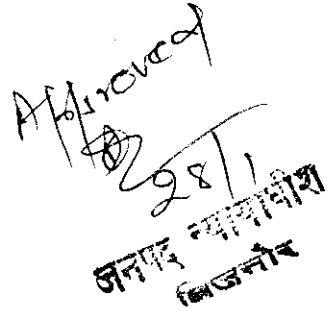 Approved
28/1
जनपद न्यायाधीश
बिजनौर